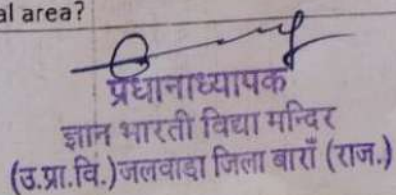 al area?
प्रधानाध्यापक
ज्ञान भारती विद्या मन्दिर
(उ.प्रा.वि.) जलवाडा जिला बाराँ (राज.)